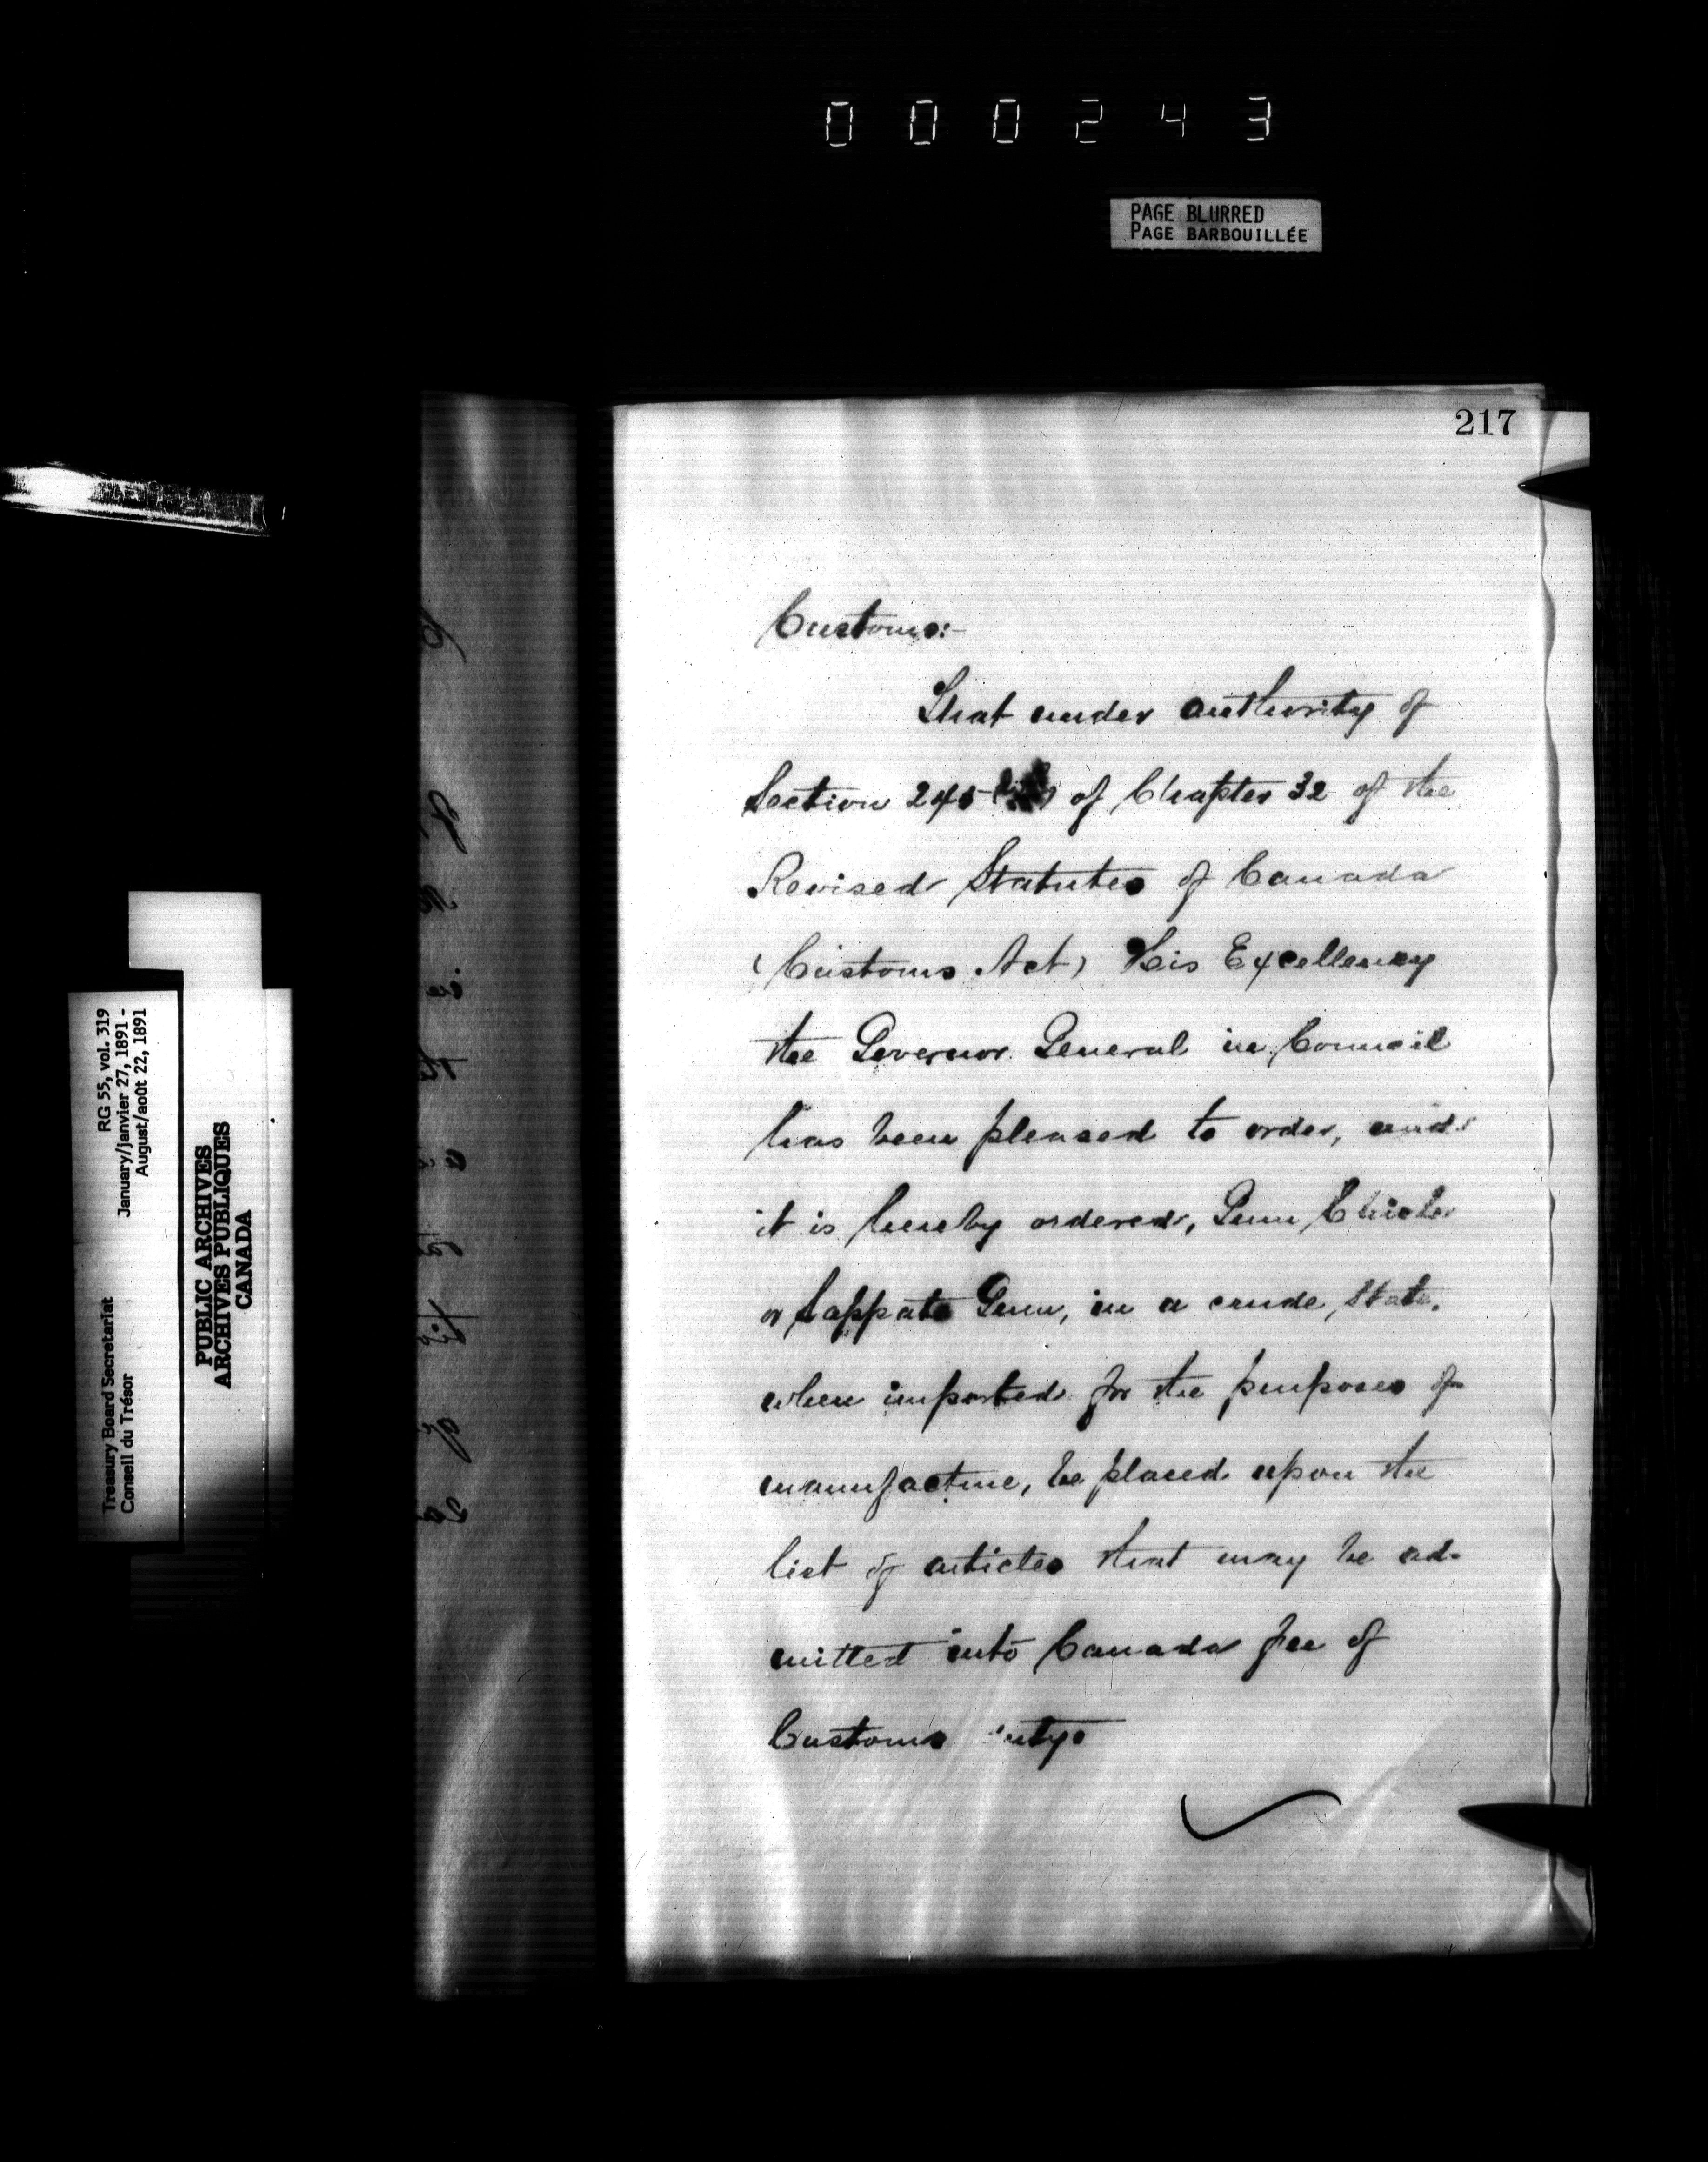 000243
PAGE BLURRED
PAGE BARBOUILLÉE
217
Customs:-
That under authority of
Section 245 of Chapter 32 of the
Revised Statutes of Canada
(Customs Act) His Excellency
the Governor General in Council
has been pleased to order, and
it is hereby ordered, Gum Chicle
or Sappato Gum, in a crude state.
when imported for the purposes of
manufacture, be placed upon the
list of articles that may be ad-
mitted into Canada free of
Customs duty.
Treasury Board Secretariat RG 55, vol. 319
Conseil du Trésor January/janvier 27, 1891 -
August/août 22, 1891
PUBLIC ARCHIVES
ARCHIVES PUBLIQUES
CANADA